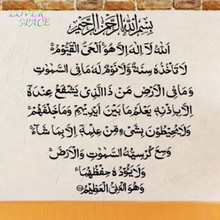 LOVER
SPACE
بسم الله الرحمن الرحيم
الله لا اله الا هو الحي القيوم
لا تأخذه سنة ولا نوم له ما في السموات
وما في الارض من ذا الذي يشفع عنده
الا باذنه يعلم ما بين ايديهم وما خلفهم
ولا يحيطون بشيء من علمه الا بما شاء
وسع كرسيه السموات والارض
ولا يؤده حفظهما
وهو العلي العظيم